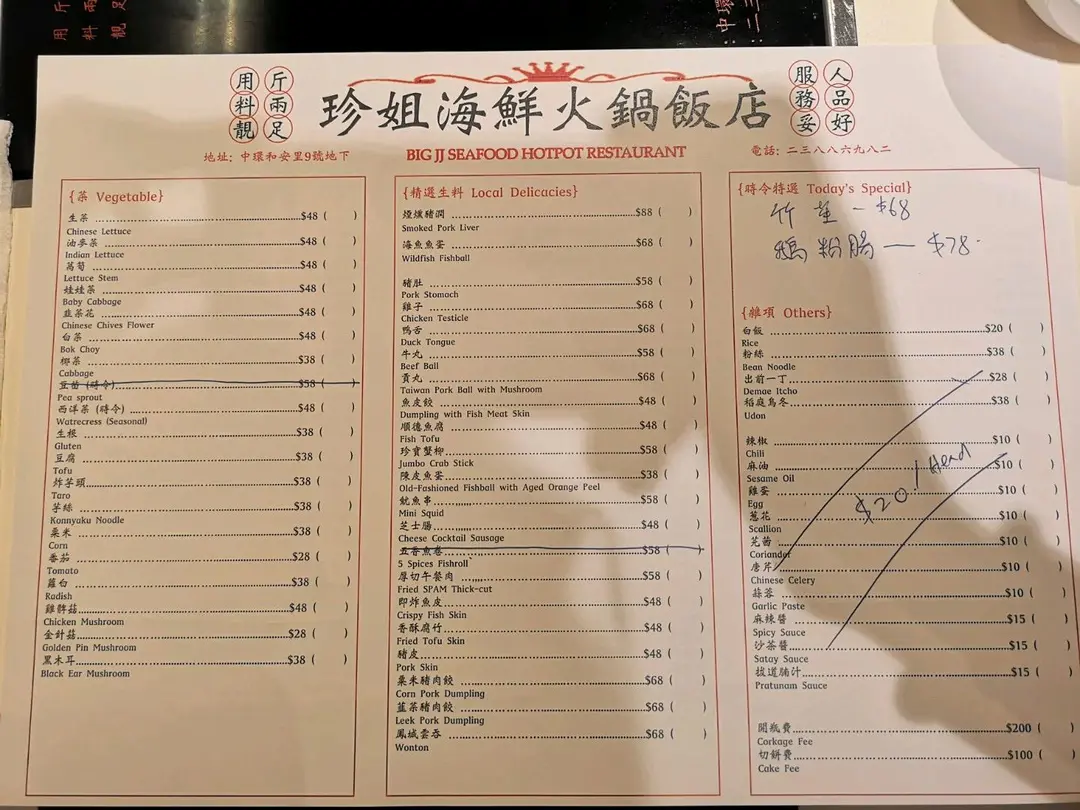 用料靚
斤兩足
珍姐海鮮火鍋飯店
服務妥
人品好
地址: 中環和安里9號地下
BIG JJ SEAFOOD HOTPOT RESTAURANT
電話: 二三八八六九八二
{菜 Vegetable}
生菜 $48 ( )
Chinese Lettuce
油麥菜 $48 ( )
Indian Lettuce
萵筍 $48 ( )
Lettuce Stem
娃娃菜 $48 ( )
Baby Cabbage
韭菜花 $48 ( )
Chinese Chives Flower
白菜 $48 ( )
Bok Choy
椰菜 $38 ( )
Cabbage
豆苗 (時令) $58 ( )
Pea sprout
西洋菜 (時令) $48 ( )
Watrecress (Seasonal)
生根 $38 ( )
Gluten
豆腐 $38 ( )
Tofu
炸芋頭 $38 ( )
Taro
芋絲 $38 ( )
Konnyaku Noodle
粟米 $38 ( )
Corn
番茄 $28 ( )
Tomato
蘿白 $38 ( )
Radish
雞髀菇 $48 ( )
Chicken Mushroom
金針菇 $28 ( )
Golden Pin Mushroom
黑木耳 $38 ( )
Black Ear Mushroom
{精選生料 Local Delicacies}
煙燻豬潤 $88 ( )
Smoked Pork Liver
海魚魚蛋 $68 ( )
Wildfish Fishball
豬肚 $58 ( )
Pork Stomach
雞子 $68 ( )
Chicken Testicle
鴨舌 $68 ( )
Duck Tongue
牛丸 $58 ( )
Beef Ball
貢丸 $68 ( )
Taiwan Pork Ball with Mushroom
魚皮餃 $48 ( )
Dumpling with Fish Meat Skin
順德魚腐 $48 ( )
Fish Tofu
珍寶蟹柳 $58 ( )
Jumbo Crab Stick
陳皮魚蛋 $38 ( )
Old-Fashioned Fishball with Aged Orange Peel
魷魚串 $58 ( )
Mini Squid
芝士腸 $48 ( )
Cheese Cocktail Sausage
五香魚卷 $58 ( )
5 Spices Fishroll
厚切午餐肉 $58 ( )
Fried SPAM Thick-cut
即炸魚皮 $48 ( )
Crispy Fish Skin
香酥腐竹 $48 ( )
Fried Tofu Skin
豬皮 $48 ( )
Pork Skin
粟米豬肉餃 $68 ( )
Corn Pork Dumpling
韮菜豬肉餃 $68 ( )
Leek Pork Dumpling
鳳城雲吞 $68 ( )
Wonton
{時令特選 Today's Special}
竹笙 - $68
鵝粉腸 — $78
{雜項 Others}
白飯 $20 ( )
Rice
粉絲 $38 ( )
Bean Noodle
出前一丁 $28 ( )
Demae Itcho
稻庭烏冬 $38 ( )
Udon
辣椒 $10 ( )
Chili
麻油 $10 ( )
Sesame Oil
雞蛋 $10 ( )
Egg
蔥花 $10 ( )
Scallion
芫茜 $10 ( )
Coriander
唐芹 $10 ( )
Chinese Celery
蒜蓉 $10 ( )
Garlic Paste
麻辣醬 $15 ( )
Spicy Sauce
沙茶醬 $15 ( )
Satay Sauce
拔道腩汁 $15 ( )
Pratunam Sauce
$20 / Head
開瓶費 $200 ( )
Corkage Fee
切餅費 $100 ( )
Cake Fee